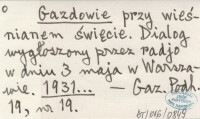 Gazdowie przy wieś-
nianem święcie. Dialog
wygłoszony przez radjo
w dniu 3 maja w Warsza-
wie. 1931... — Gaz. Podh.
19, nr 19.
bt/016/0849